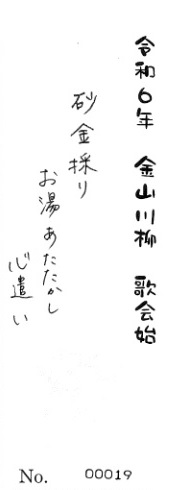 令和６年　金山川柳　歌会始
砂金採り
お湯あたたかし
心遣い
No. 00019